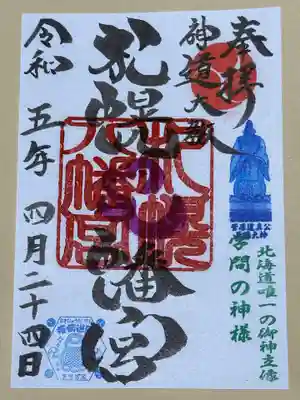 奉拝
神道大教
札幌八幡宮
札幌八幡宮
菅原道真公
学問の神様
北海道唯一の御神立像
令和五年四月二十四日